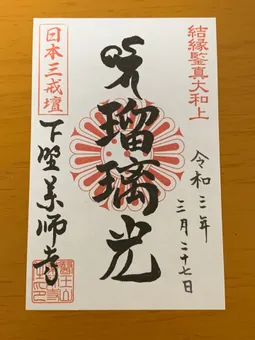 結縁鑒真大和上
令和二年
三月二十七日
瑠璃光
日本三戒壇
下野薬師寺